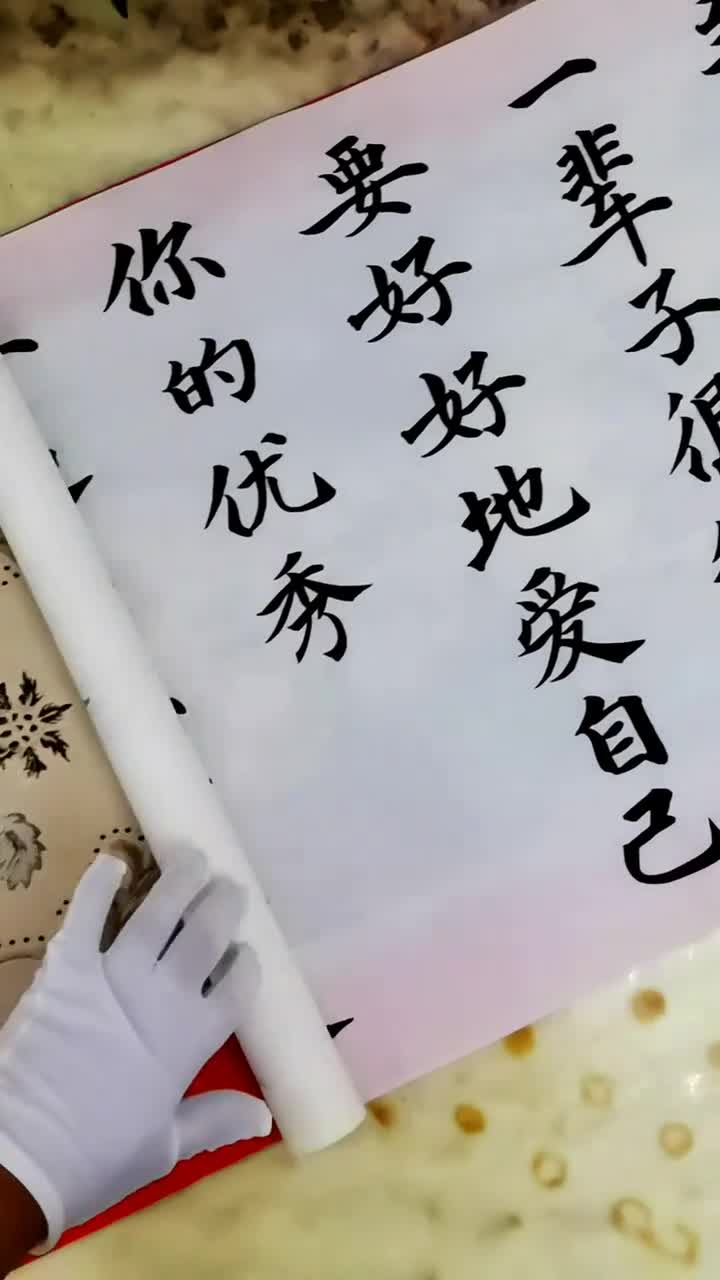 一辈子很
要好好地爱自己
你的优秀